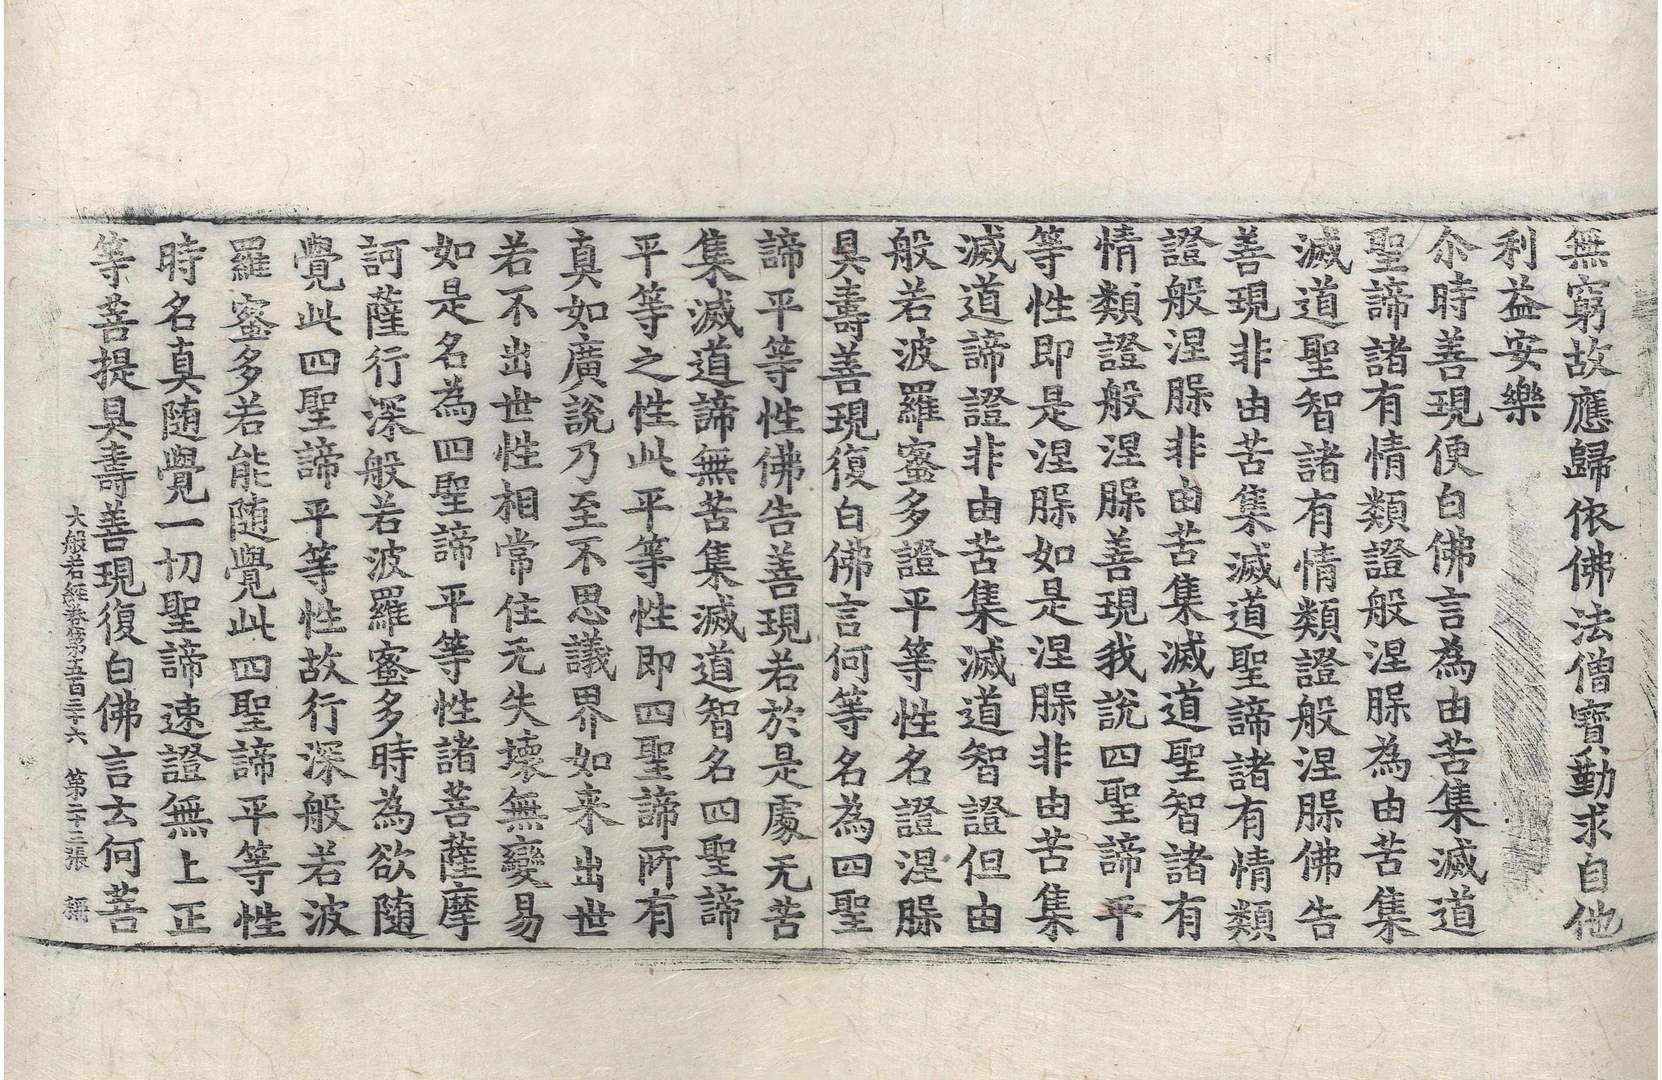 無窮故應歸依佛法僧寶勤求自他
利益安樂
尒時善現便白佛言為由苦集滅道
聖諦諸有情類證般涅槃為由苦集
滅道聖智諸有情類證般涅槃佛告
善現非由苦集滅道聖諦諸有情類
證般涅槃非由苦集滅道聖智諸有
情類證般涅槃善現我說四聖諦平
等性即是涅槃如是涅槃非由苦集
滅道諦證非由苦集滅道智證但由
般若波羅蜜多證平等性名證涅槃
具壽善現復白佛言何等名為四聖
諦平等性佛告善現若於是處无苦
集滅道諦無苦集滅道智名四聖諦
平等之性此平等性即四聖諦所有
真如廣說乃至不思議界如来出世
若不出世性相常住无失壞無變易
如是名為四聖諦平等性諸菩薩摩
訶薩行深般若波羅蜜多時為欲随
覺此四聖諦平等性故行深般若波
羅蜜多若能随覺此四聖諦平等性
時名真随覺一切聖諦速證無上正
等菩提具壽善現復白佛言云何菩
大般若經卷第五百三十六　第二十三張　稱